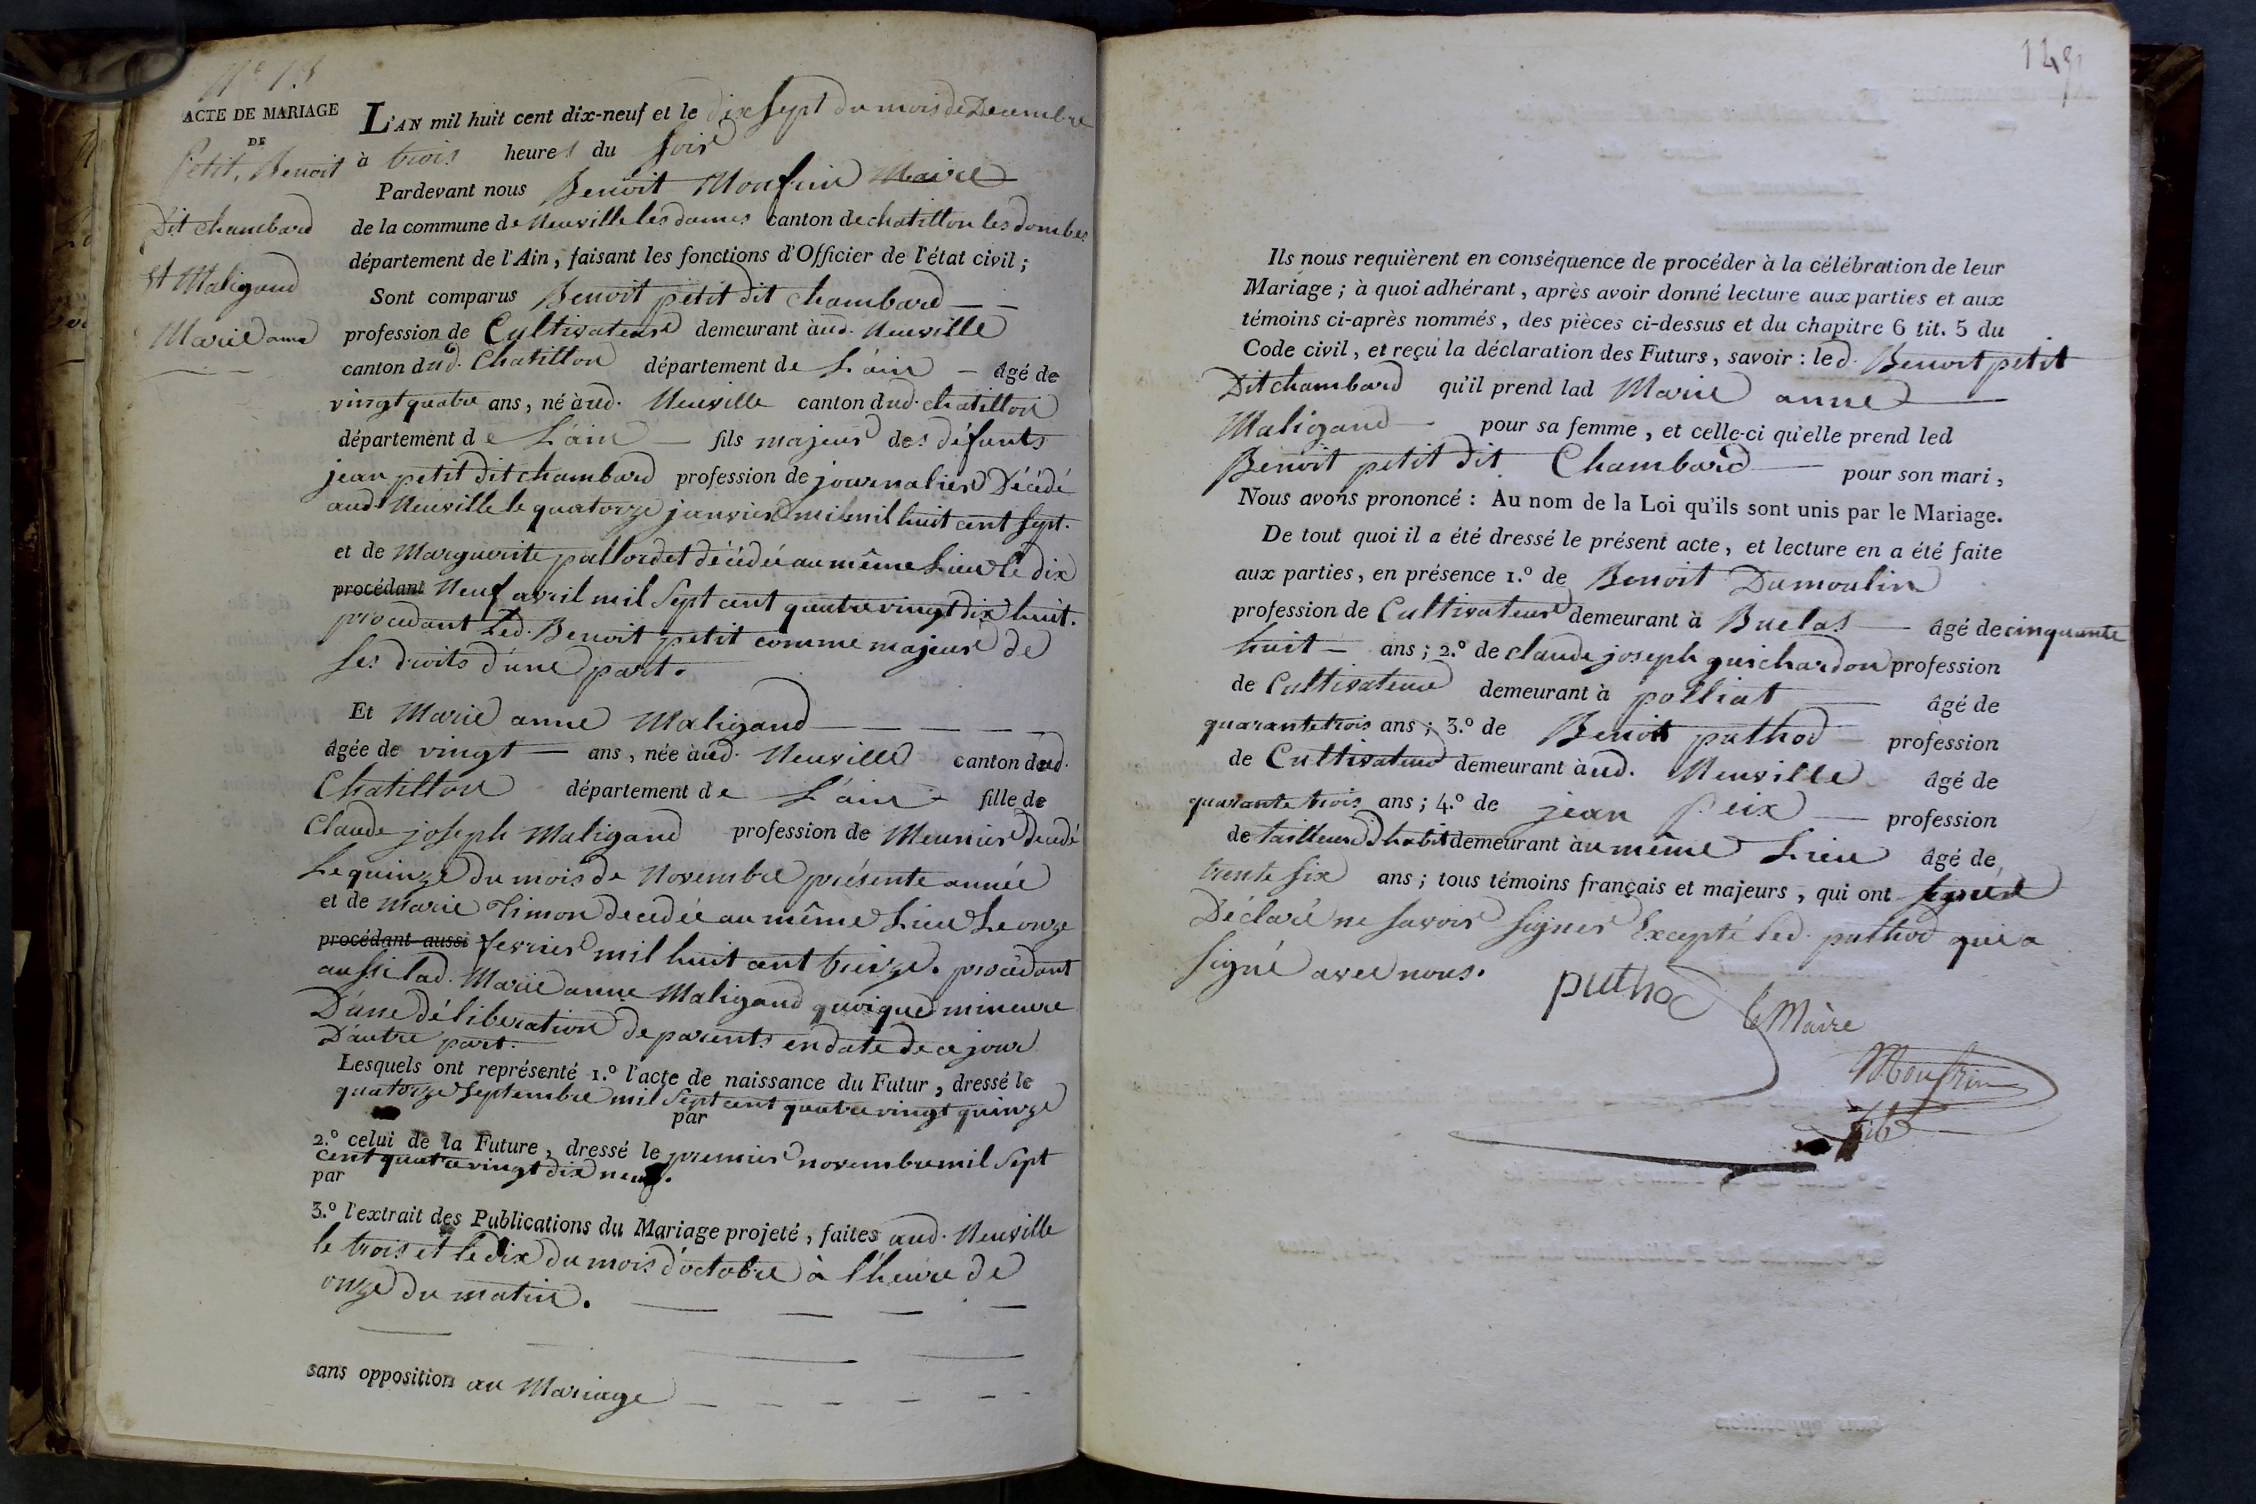 N° 13
ACTE DE MARIAGE
DE
Petit, Benoit
Dit chambard
et Maligand
Marie anne
L'AN mil huit cent dix-neuf et le dix sept du mois de Decembre
à trois heures du soir
Pardevant nous Benoit Monfrin Maire
de la commune de Neuville les dames canton de chatillon les dombes
département de l'Ain, faisant les fonctions d'Officier de l'état civil;
Sont comparus Benoit petit dit chambard
profession de Cultivateur demeurant aud. Neuville
canton dud. Chatillon département de L'ain âgé de
vingt quatre ans, né aud. Neuville canton dud. chatillon
département de L'ain fils majeur des défunts
jean petit dit chambard profession de journalier Décédé
aud Neuville le quatorze janvier mil mil huit cent sept.
et de Marguerite pallordet décédée au même Lieu le dix
procédant Neuf avril mil Sept cent quatre vingt dix huit.
procedant Led. Benoit petit comme majeur de
ses droits d'une part.
Et Marie anne Maligand
âgée de vingt ans, née aud. Neuville canton dud.
Chatillon département de L'ain fille de
Claude joseph Maligand profession de Meunier decedé
Le quinze du mois de Novembre présente année
et de Marie Timon decedée au même Lieu Le onze
procédant aussi fevrier mil huit cent treize. procédant
aussi lad. Marie anne Maligand quoique mineure
D'une déliberation de parents en date de ce jour
D'autre part.
Lesquels ont représenté 1.° l'acte de naissance du Futur, dressé le
quatorze Septembre mil Sept cent quatre vingt quinze
par
2.° celui de la Future, dressé le premier novembre mil Sept
cent quatre vingt dix neuf.
par
3.° l'extrait des Publications du Mariage projeté, faites aud. Neuville
le trois et le dix du mois d'octobre à l'heure de
onze du matin.
sans opposition au Mariage
Ils nous requièrent en conséquence de procéder à la célébration de leur
Mariage; à quoi adhérant, après avoir donné lecture aux parties et aux
témoins ci-après nommés, des pièces ci-dessus et du chapitre 6 tit. 5 du
Code civil, et reçu la déclaration des Futurs, savoir: led. Benoit petit
Dit chambard qu'il prend lad Marie anne
Maligand pour sa femme, et celle-ci qu'elle prend led
Benoit petit dit Chambard pour son mari,
Nous avons prononcé: Au nom de la Loi qu'ils sont unis par le Mariage.
De tout quoi il a été dressé le présent acte, et lecture en a été faite
aux parties, en présence 1.° de Benoit Dumoulin
profession de Cultivateur demeurant à Buelas âgé de cinquante
huit ans; 2.° de claude joseph guichardon profession
de Cultivateur demeurant à polliat âgé de
quarante trois ans; 3.° de Benoit puthod profession
de Cultivateur demeurant aud. Neuville âgé de
quarante trois ans; 4.° de jean Peix profession
de tailleur d'habit demeurant au même Lieu âgé de
trente six ans; tous témoins français et majeurs, qui ont signé
Déclaré ne savoir signer Excepté led. puthod qui a
signé avec nous.
puthod
le Maire
Monfrin